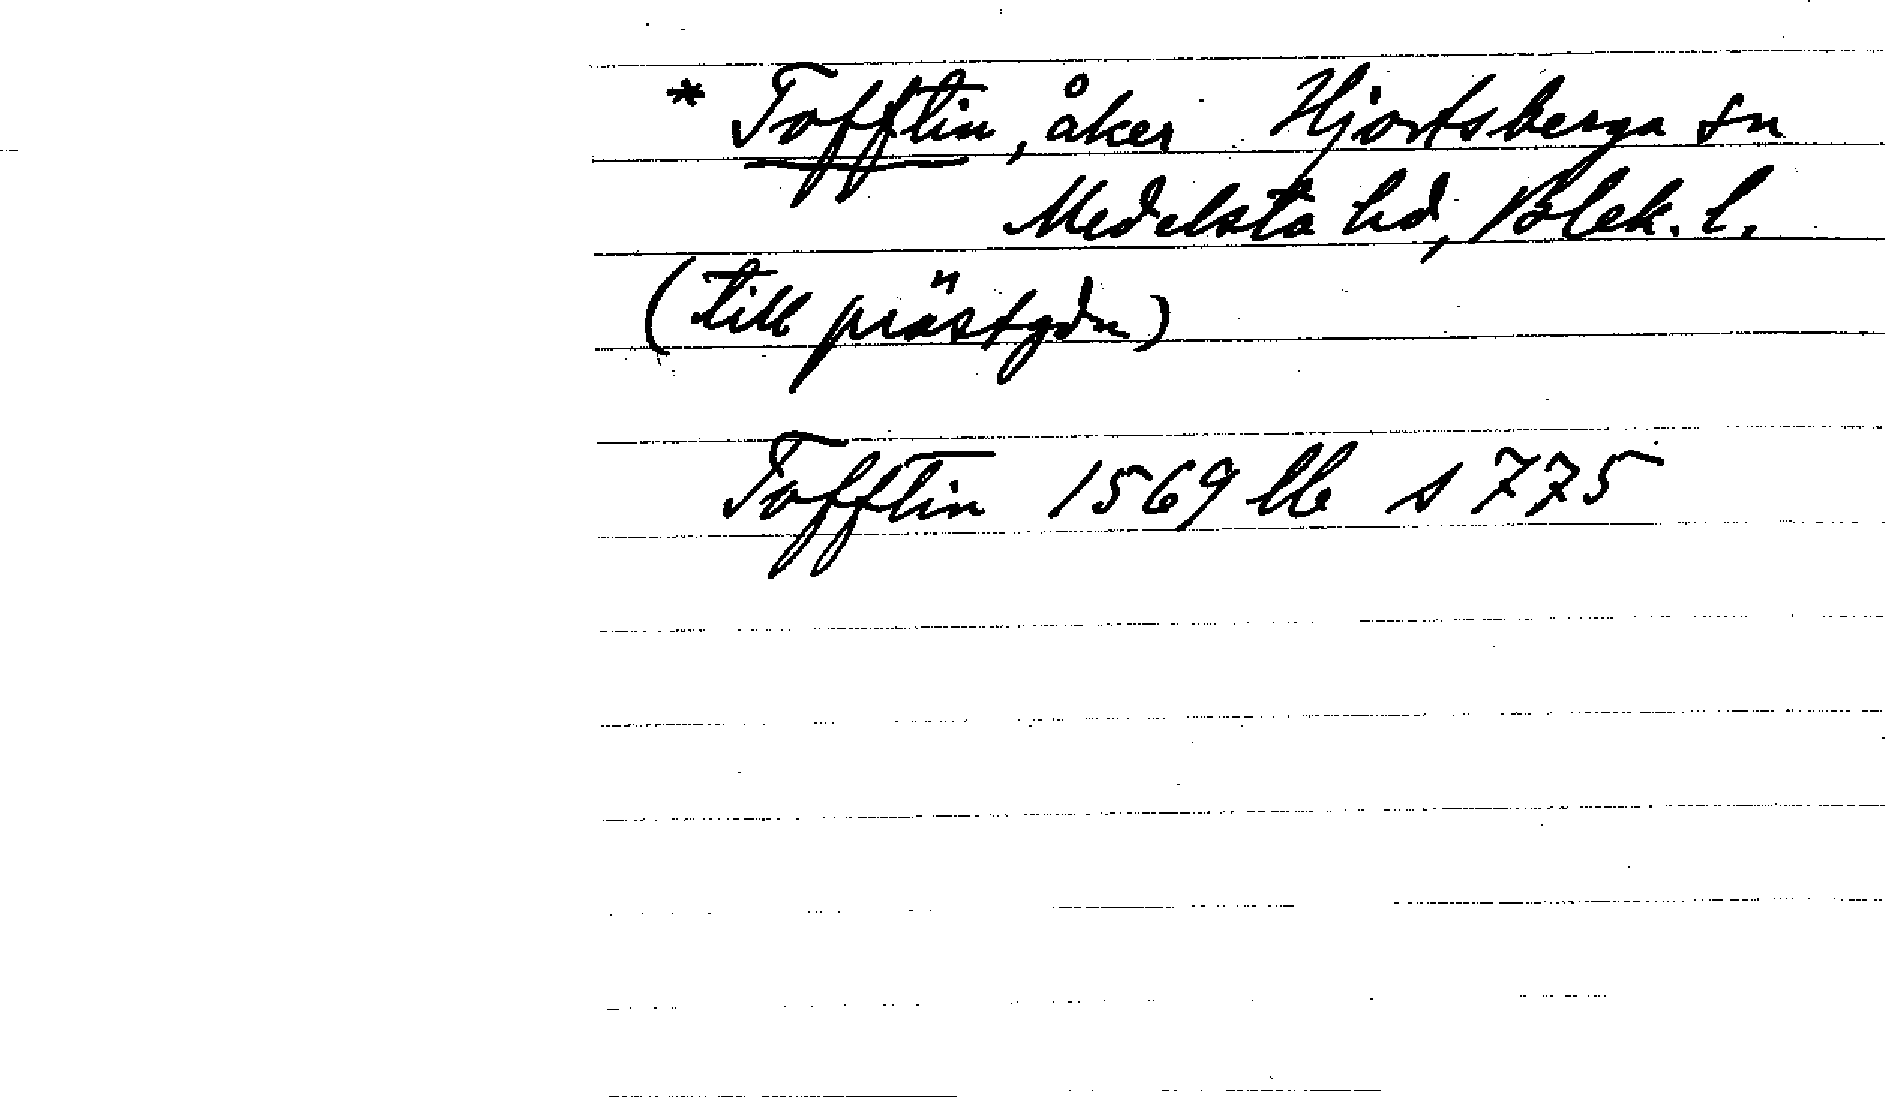 * Tofftin, åker Hjortsberga sn
Medelsta hd, Blek. l.
(till prästgdn)
Tofftin 1569 llb s 775